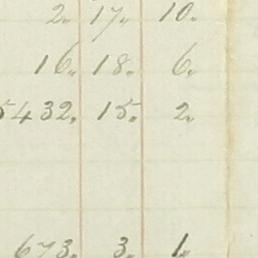 2. 17. 10.
16. 18. 6.
5432. 15. 2.
673. 3. 1.